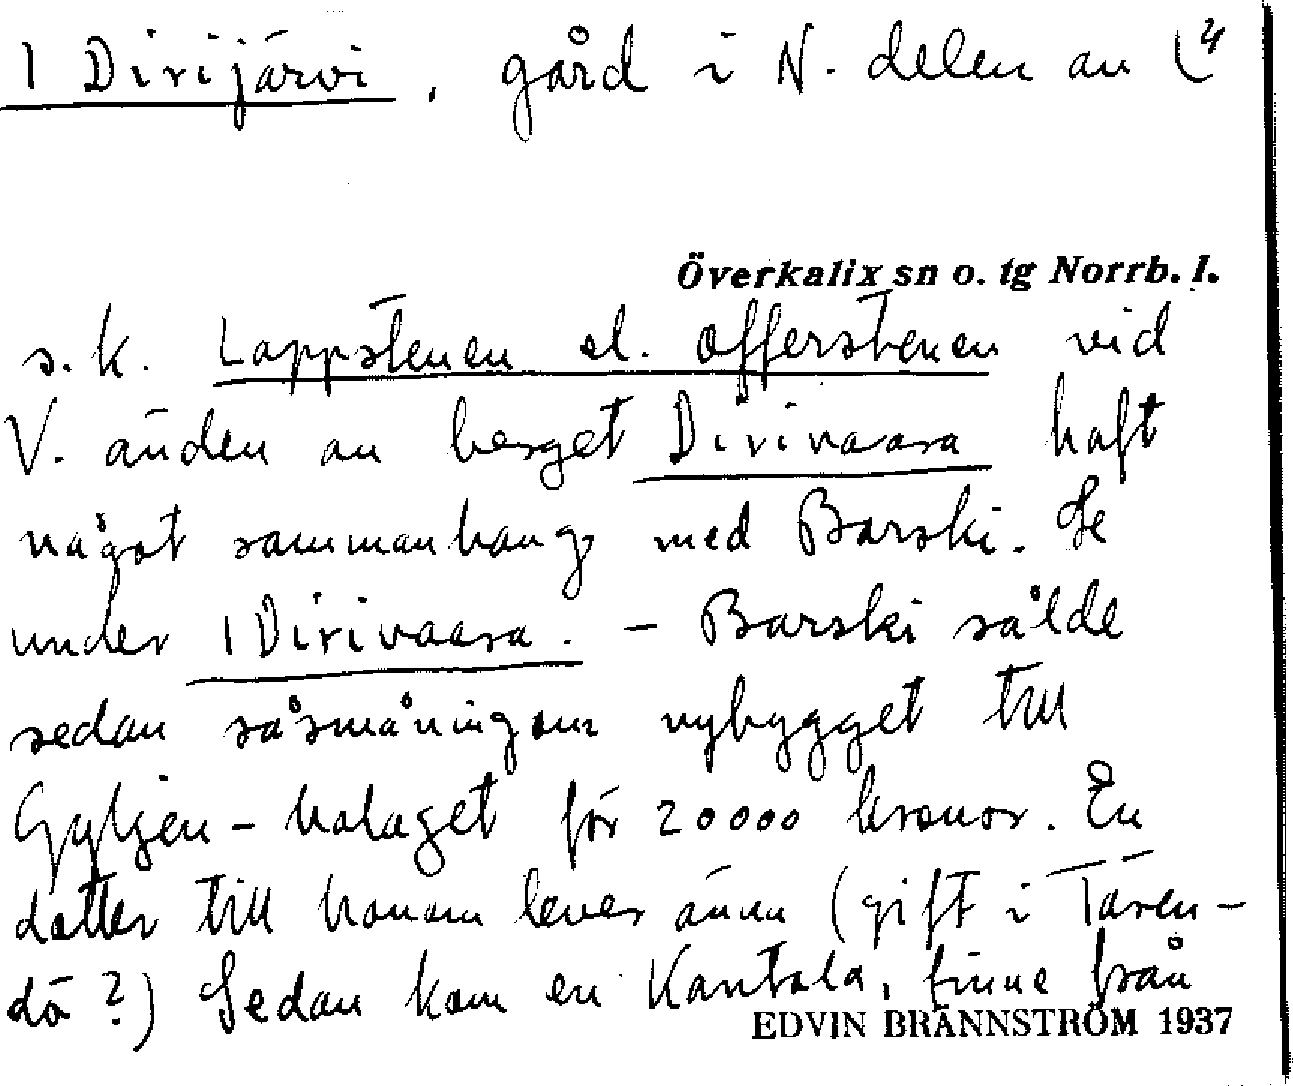 1 Dirijärvi, gård i N. delen av L⁴
Överkalix sn o. tg Norrb. l.
s.k. Lappstenen el. offerstenen vid
V. änden av berget Dirivaara haft
något sammanhang med Barski. Se
under 1 Dirivaara. – Barski sålde
sedan såsmåningom nybygget till
Gyljen-bolaget för 20000 kronor. En
dotter till honom lever ännu (gift i Tären-
dö?) Sedan kom en Kantola, finne från
EDVIN BRÄNNSTRÖM 1937